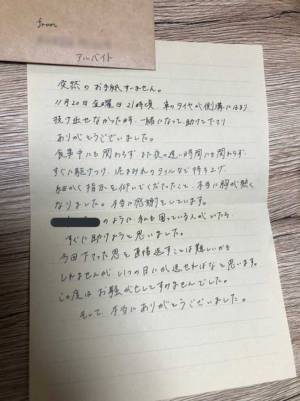 from
アルバイト
突然のお手紙すみません。
11月20日金曜日21時頃、車のタイヤが側溝にはまり
抜け出せなかった時、一緒になって助けて下さり
ありがとうございました。
食事中にも関わらず、また夜の遅い時間にも関わらず
すぐに駆けつけ、泥まみれのタイルなど持ち上げ
細かく指示を付いてくださったこと、本当に胸が熱く
なりました。本当に感謝をしています。
のように私も困っている人がいたら
すぐに助けようと思いました。
今回下さった恩を直接返すことは難しいかも
しれませんが、いつの日にか返せればなと思います。
この度はお騒がせしてすみませんでした。
そして、本当にありがとうございました。